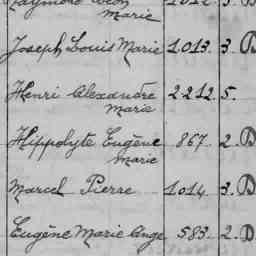 Raymond Léon 1012. 3.
Marie
Joseph Louis Marie 1013. 3. D
Henri Alexandre 2212. 5.
Marie
Hippolyte Eugène 867. 2. D
Marie
Marcel Pierre 1014. 3. D
Eugène Marie Ange 583. 2. D